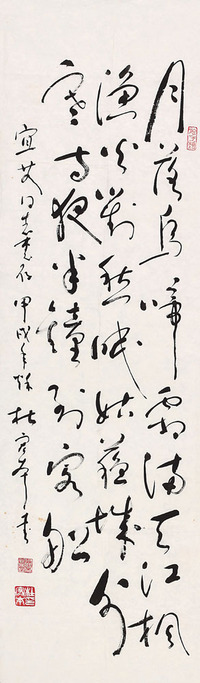 月落乌啼霜满天江枫
渔火对愁眠姑苏城外
寒山寺夜半钟声到客船
宜艾同志属 甲戌年秋 杜宣草书